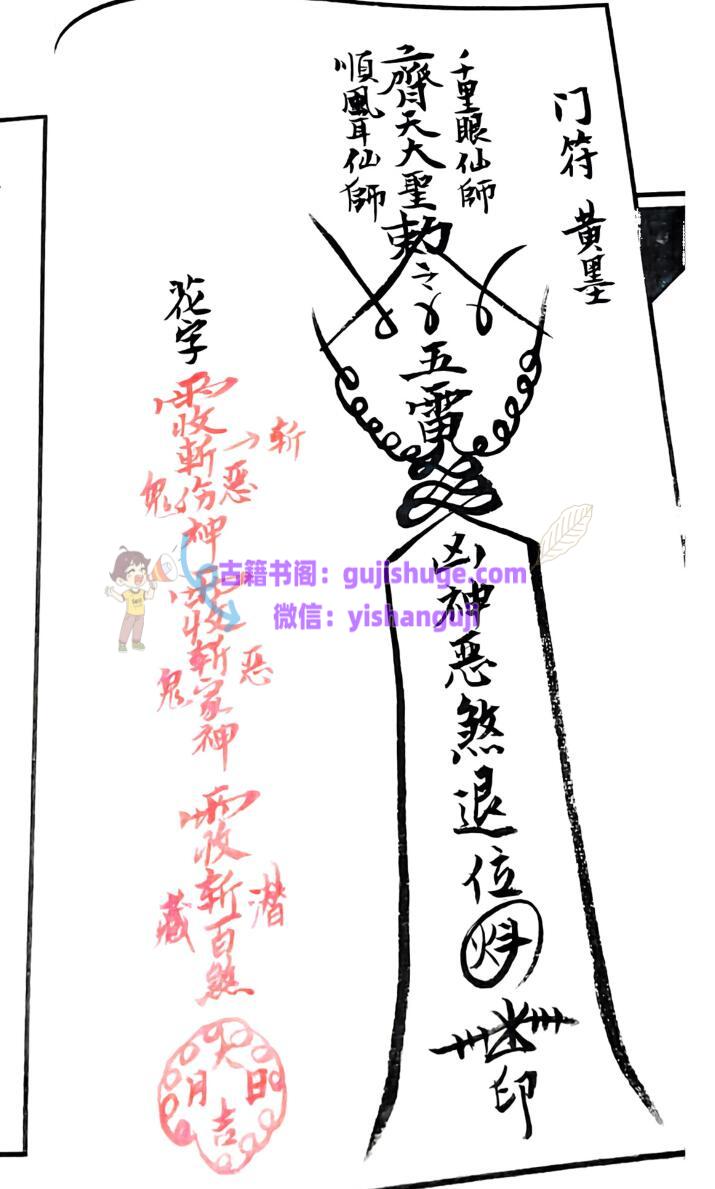 门符 黄墨
千里眼仙師
齊天大聖
順風耳仙師
敕
五雷
凶神惡煞退位
印
花字
收斬伤神
惡鬼
→斬
收斬家神
惡鬼
收斬百煞
潜藏
火
日
月
吉
古籍书阁：gujishuge.com
微信：yishanguji